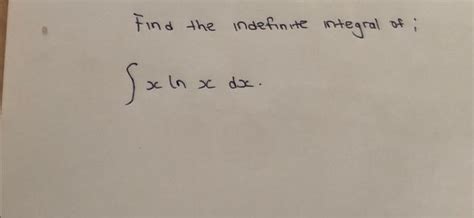 Find the indefinite integral of ;
∫ x ln x dx.